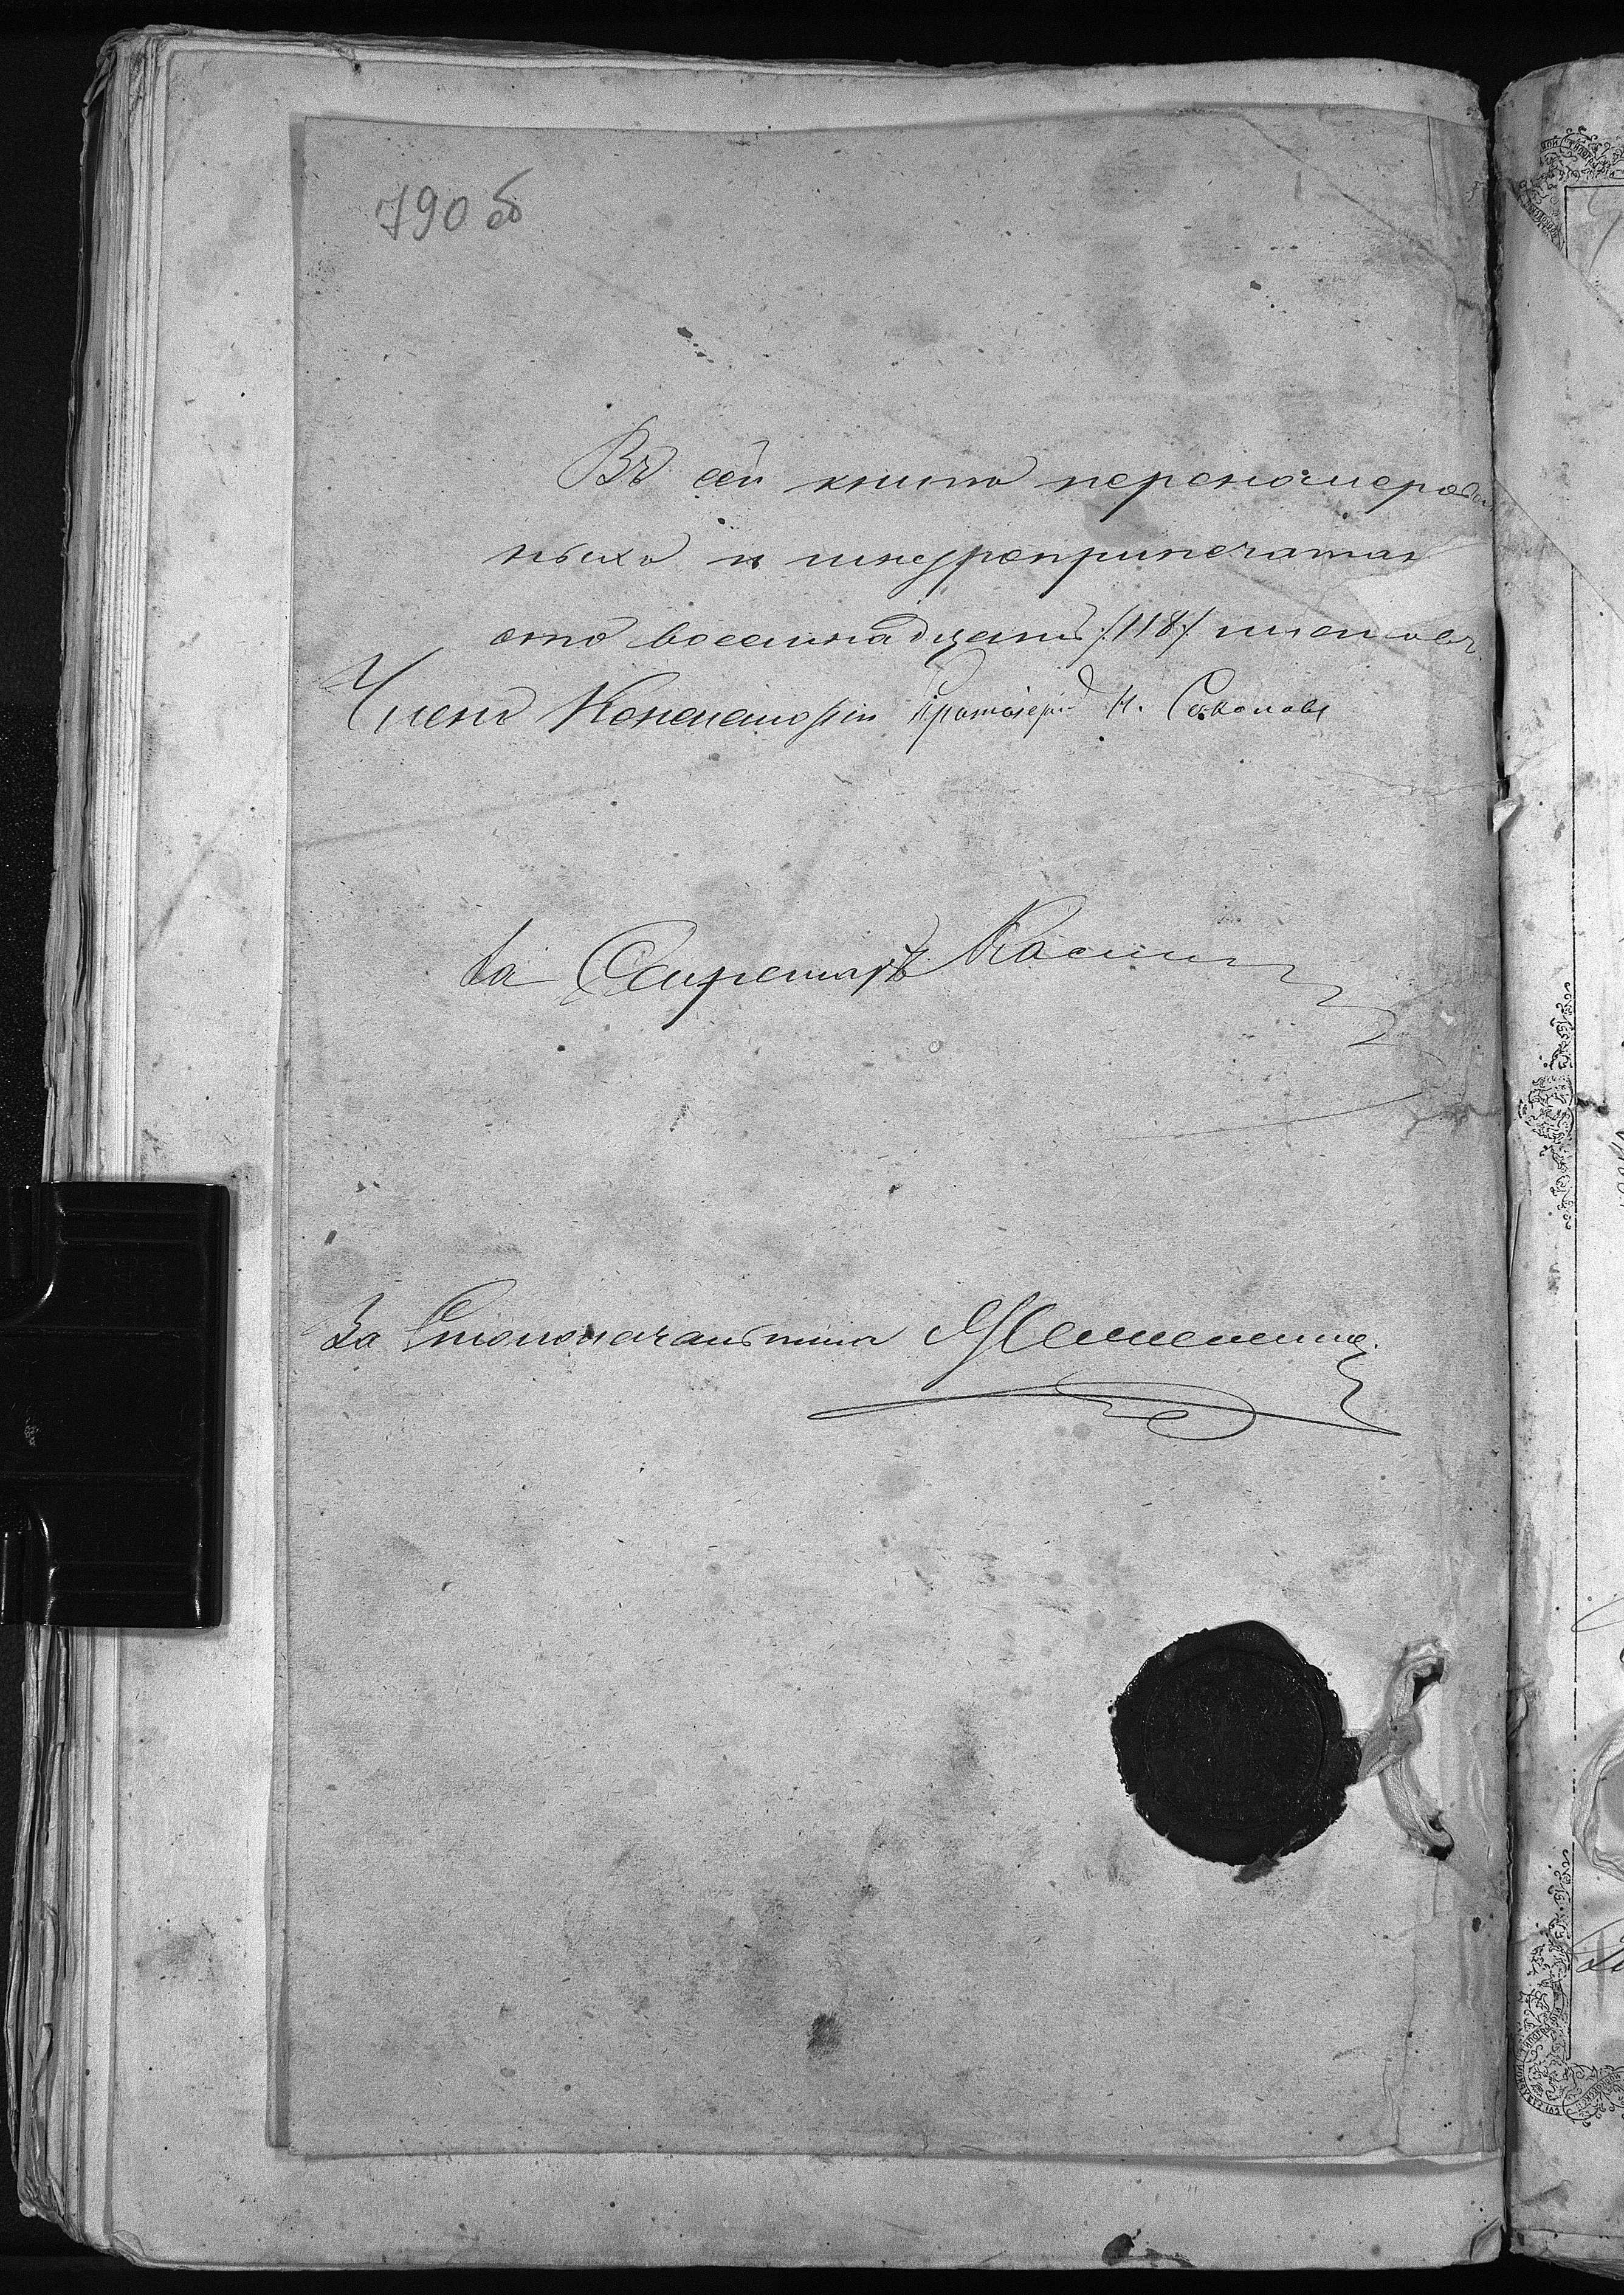 790 об
Въ сей книгѣ перенумерован
ныхъ и шнуроприпечатан
сто восемнадцать /118/ листовъ.
Членъ Консисторіи Протоіерей Н. Соколовъ
За Секретаря
За Столоначальника